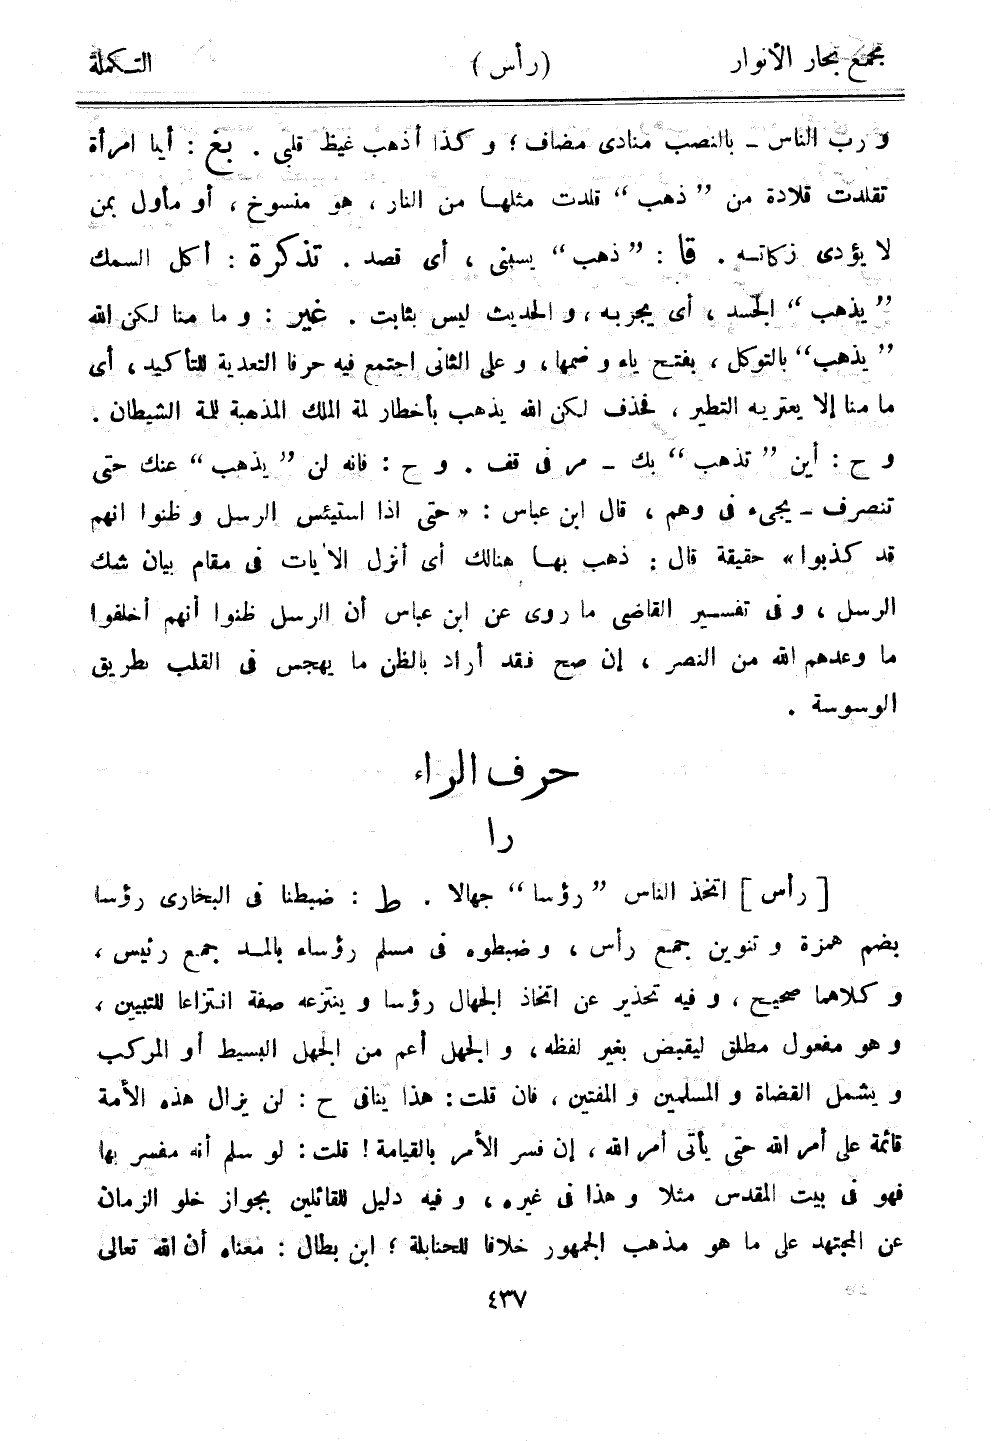 مجمع بحار الأنوار (رأس) التكملة
و رب الناس ـ بالنصب منادى مضاف ؛ و كذا أذهب غيظ قلبي . بغ : أيما امرأة
تقلدت قلادة من ”ذهب“ قلدت مثلها من النار ، هو منسوخ ، أو مأول بمن
لا يؤدى زكاته . قا : ”ذهب“ يسبني ، أى قصد . تذكرة : أكل السمك
”يذهب“ الجسد ، أى يجربه ، و الحديث ليس بثابت . غير : و ما منا لكن الله
”يذهب“ بالتوكل ، بفتح ياء و ضمها ، و على الثانى اجتمع فيه حرفا التعدية للتأكيد ، أى
ما منا إلا يعتريه التطير ، فحذف لكن الله يذهب بأخطار لمة الملك المذهبة للمة الشيطان .
و ح : أين ”تذهب“ بك ـ مر فى قف . و ح : فانه لن ”يذهب“ عنك حتى
تنصرف ـ يجىء فى وهم ، قال ابن عباس : « حتى اذا استيئس الرسل و ظنوا انهم
قد كذبوا » حقيقة قال : ذهب بها هنالك أى أنزل الآيات فى مقام بيان شك
الرسل ، و فى تفسير القاضى ما روى عن ابن عباس أن الرسل ظنوا أنهم أخلفوا
ما وعدهم الله من النصر ، إن صح فقد أراد بالظن ما يهجس فى القلب بطريق
الوسوسة .
حرف الراء
را
[ رأس ] اتخذ الناس ”رؤسا“ جهالا . ط : ضبطنا فى البخارى رؤسا
بضم همزة و تنوين جمع رأس ، و ضبطوه فى مسلم رؤساء بالمد جمع رئيس ،
و كلاهما صحيح ، و فيه تحذير عن اتخاذ الجهال رؤسا و ينتزعه صفة انتزاعا للتبيين ،
و هو مفعول مطلق ليقبض بغير لفظه ، و الجهل أعم من الجهل البسيط أو المركب
و يشمل القضاة و المسلمين و المفتين ، فان قلت : هذا ينافى ح : لن يزال هذه الأمة
قائمة على أمر الله حتى يأتى أمر الله ، إن فسر الأمر بالقيامة ! قلت : لو سلم أنه مفسر بها
فهو فى بيت المقدس مثلا و هذا فى غيره ، و فيه دليل للقائلين بجواز خلو الزمان
عن المجتهد على ما هو مذهب الجمهور خلافا للحنابلة ؛ ابن بطال : معناه أن الله تعالى
٤٣٧